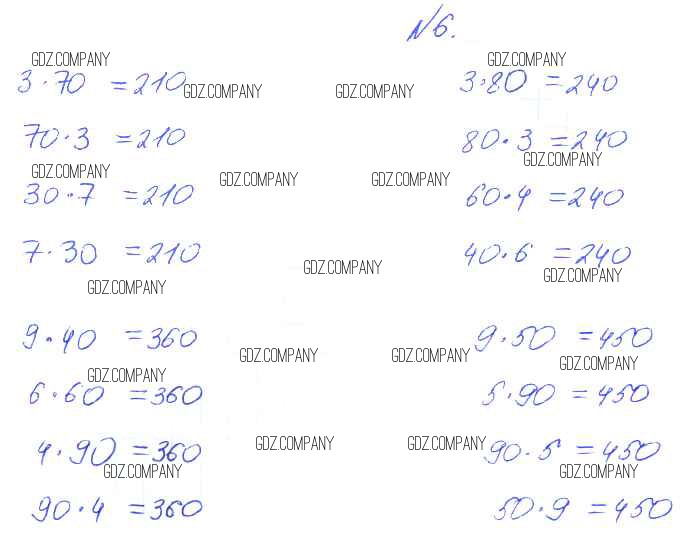 №6.
GDZ.COMPANY GDZ.COMPANY
3·70 =210 3·80 =240
GDZ.COMPANY GDZ.COMPANY
70·3 =210 80·3 =240
GDZ.COMPANY
GDZ.COMPANY GDZ.COMPANY GDZ.COMPANY
30·7 =210 60·4 =240
7·30 =210 40·6 =240
GDZ.COMPANY GDZ.COMPANY
GDZ.COMPANY
9·40 =360 9·50 =450
GDZ.COMPANY GDZ.COMPANY GDZ.COMPANY
GDZ.COMPANY
6·60 =360 5·90 =450
GDZ.COMPANY GDZ.COMPANY
4·90 =360 90·5 =450
GDZ.COMPANY GDZ.COMPANY
90·4 =360 50·9 =450